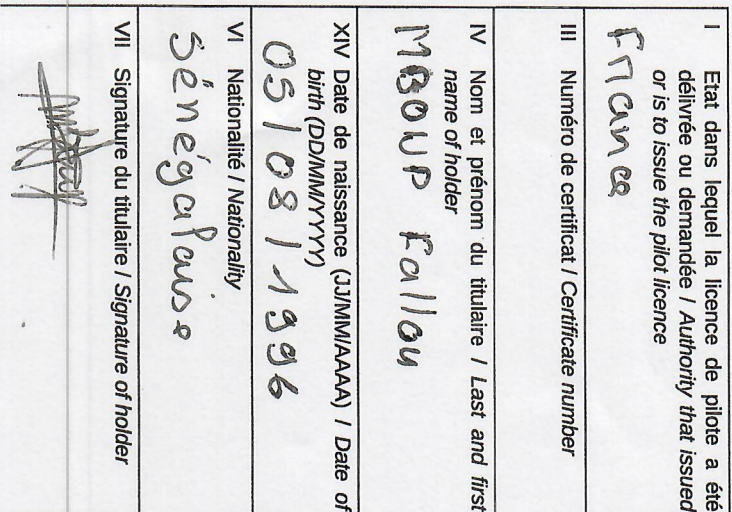 I Etat dans lequel la licence de pilote a été
délivrée ou demandée / Authority that issued
or is to issue the pilot licence
France
III Numéro de certificat / Certificate number
IV Nom et prénom du titulaire / Last and first
name of holder
MBOUP Fallou
XIV Date de naissance (JJ/MM/AAAA) / Date of
birth (DD/MM/YYYY)
05/08/1996
VI Nationalité / Nationality
Sénégalaise
VII Signature du titulaire / Signature of holder